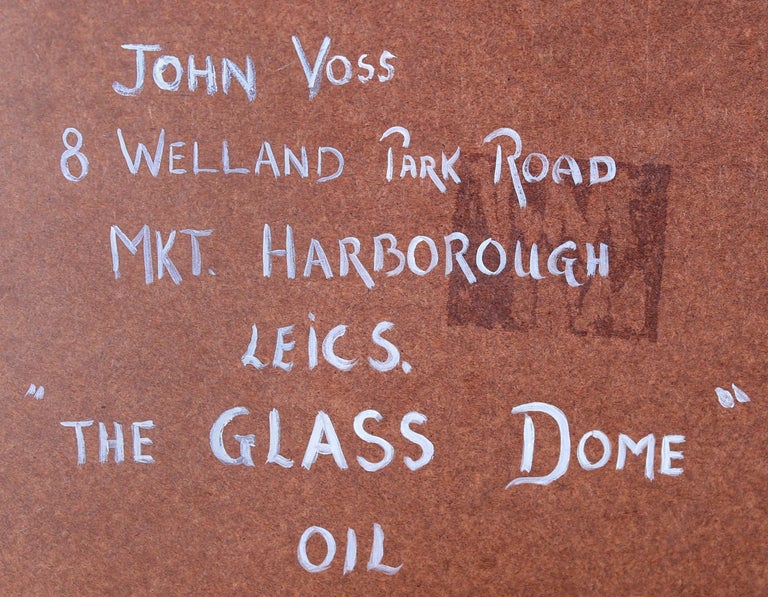 JOHN VOSS
8 WELLAND PARK ROAD
MKT. HARBOROUGH
LEICS.
"THE GLASS DOME"
OIL